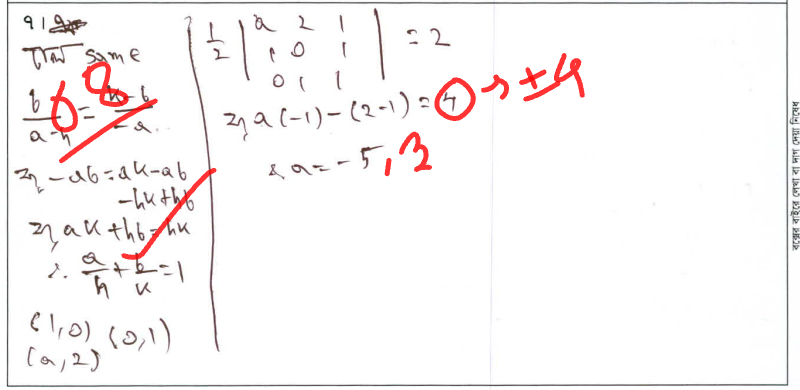 ৭।
ঢাল same
b/(a-h) = (k-b)/(-a)
বা, -ab = ak-ab
-hk+hb
বা, ak+hb=hk
∴ a/h + b/k = 1
(1,0) (0,1)
(a,2)
08
1/2 | a 2 1
1 0 1
0 1 1 | = 2
বা, a(-1) - (2-1) = 4 → ±4
∴ a = -5, 3
বক্সের বাইরে লেখা বা দাগ দেয়া নিষেধ